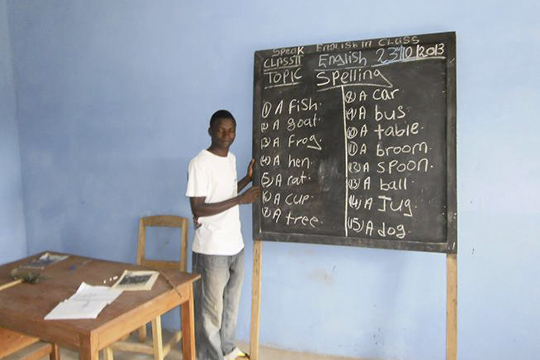 SPEAK ENGLISH IN CLASS
CLASS II English 23/10/2013
TOPIC Spelling
(1) A fish.
(2) A goat.
(3) A frog.
(4) A hen.
(5) A rat.
(6) A cup.
(7) A tree.
(8) A car
(9) A bus.
(10) A table.
(11) A broom.
(12) A spoon.
(13) A ball.
(14) A Jug.
(15) A dog.